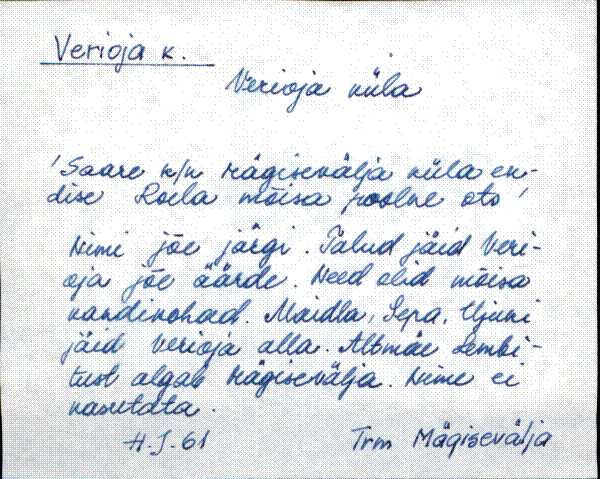 Verioja k.
Verioja küla
'Saare k/n Mägisevälja küla en-
dise Roela mõisa poolne ots'
Nimi jõe järgi. Talud jäid Veri-
oja jõe äärde. Need olid mõisa
kandikohad. Maidla, Sepa, Ujuni
jäid Verioja alla. Altmäe Lembi-
tust algab Mägisevälja. Nime ei
kasutata.
H.J-61 Trm Mägisevälja